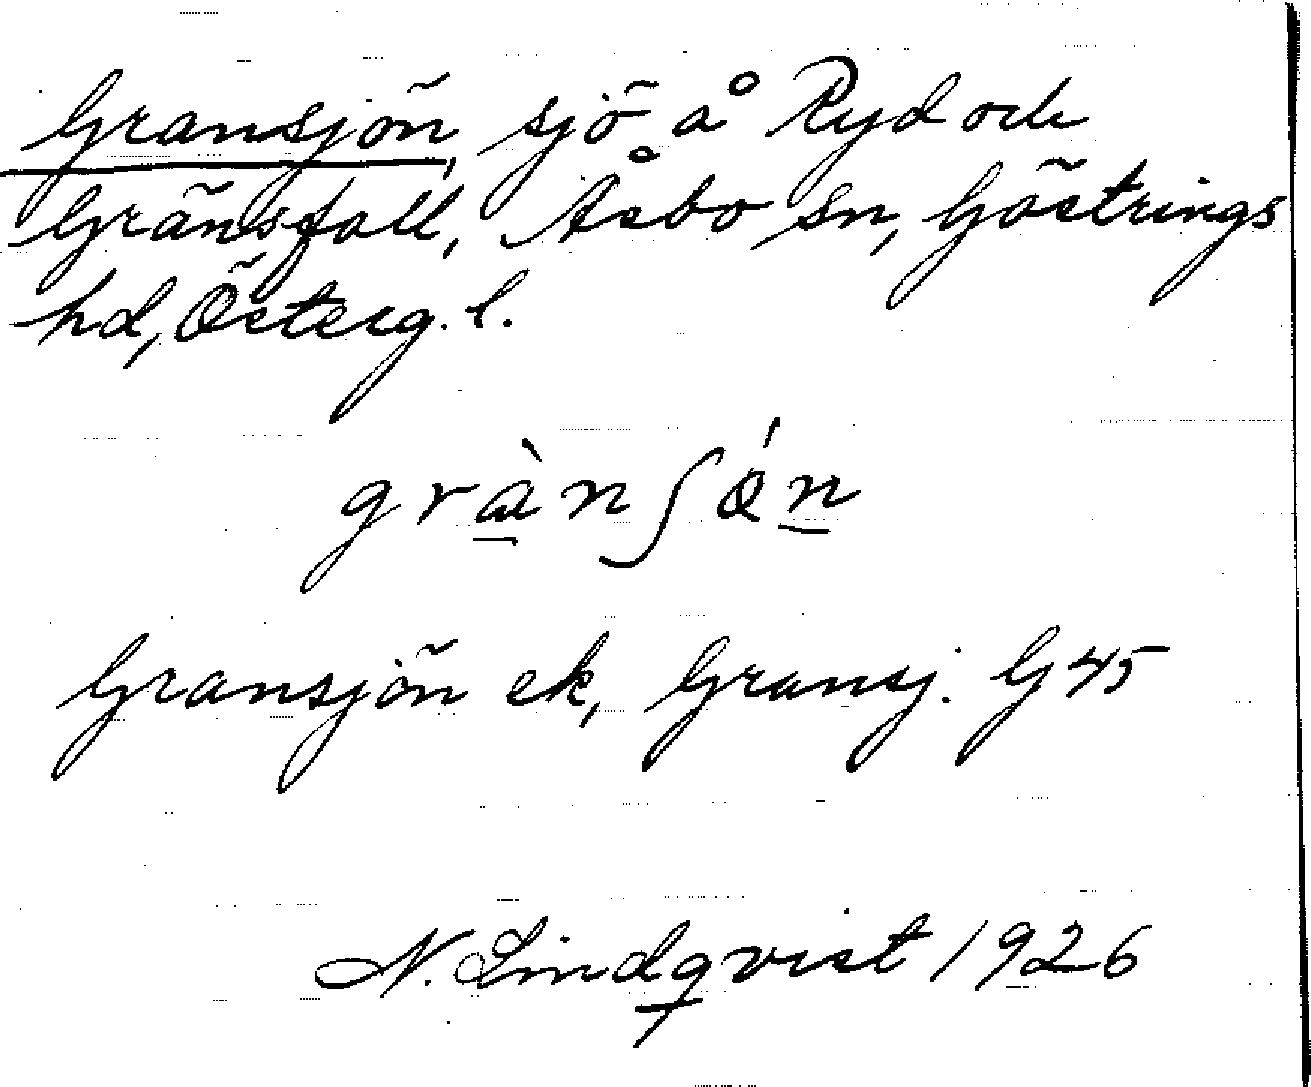 Gransjön, sjö å Ryd och
Gränsfall, Åsbo sn, Göstrings
hd, Österg. l.
grànʃǿn
Gransjön ek, Gransj. G 45
N. Lindqvist 1926